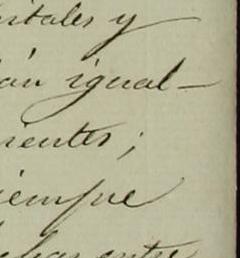 itales y
ón igual-
rientes;
iempre